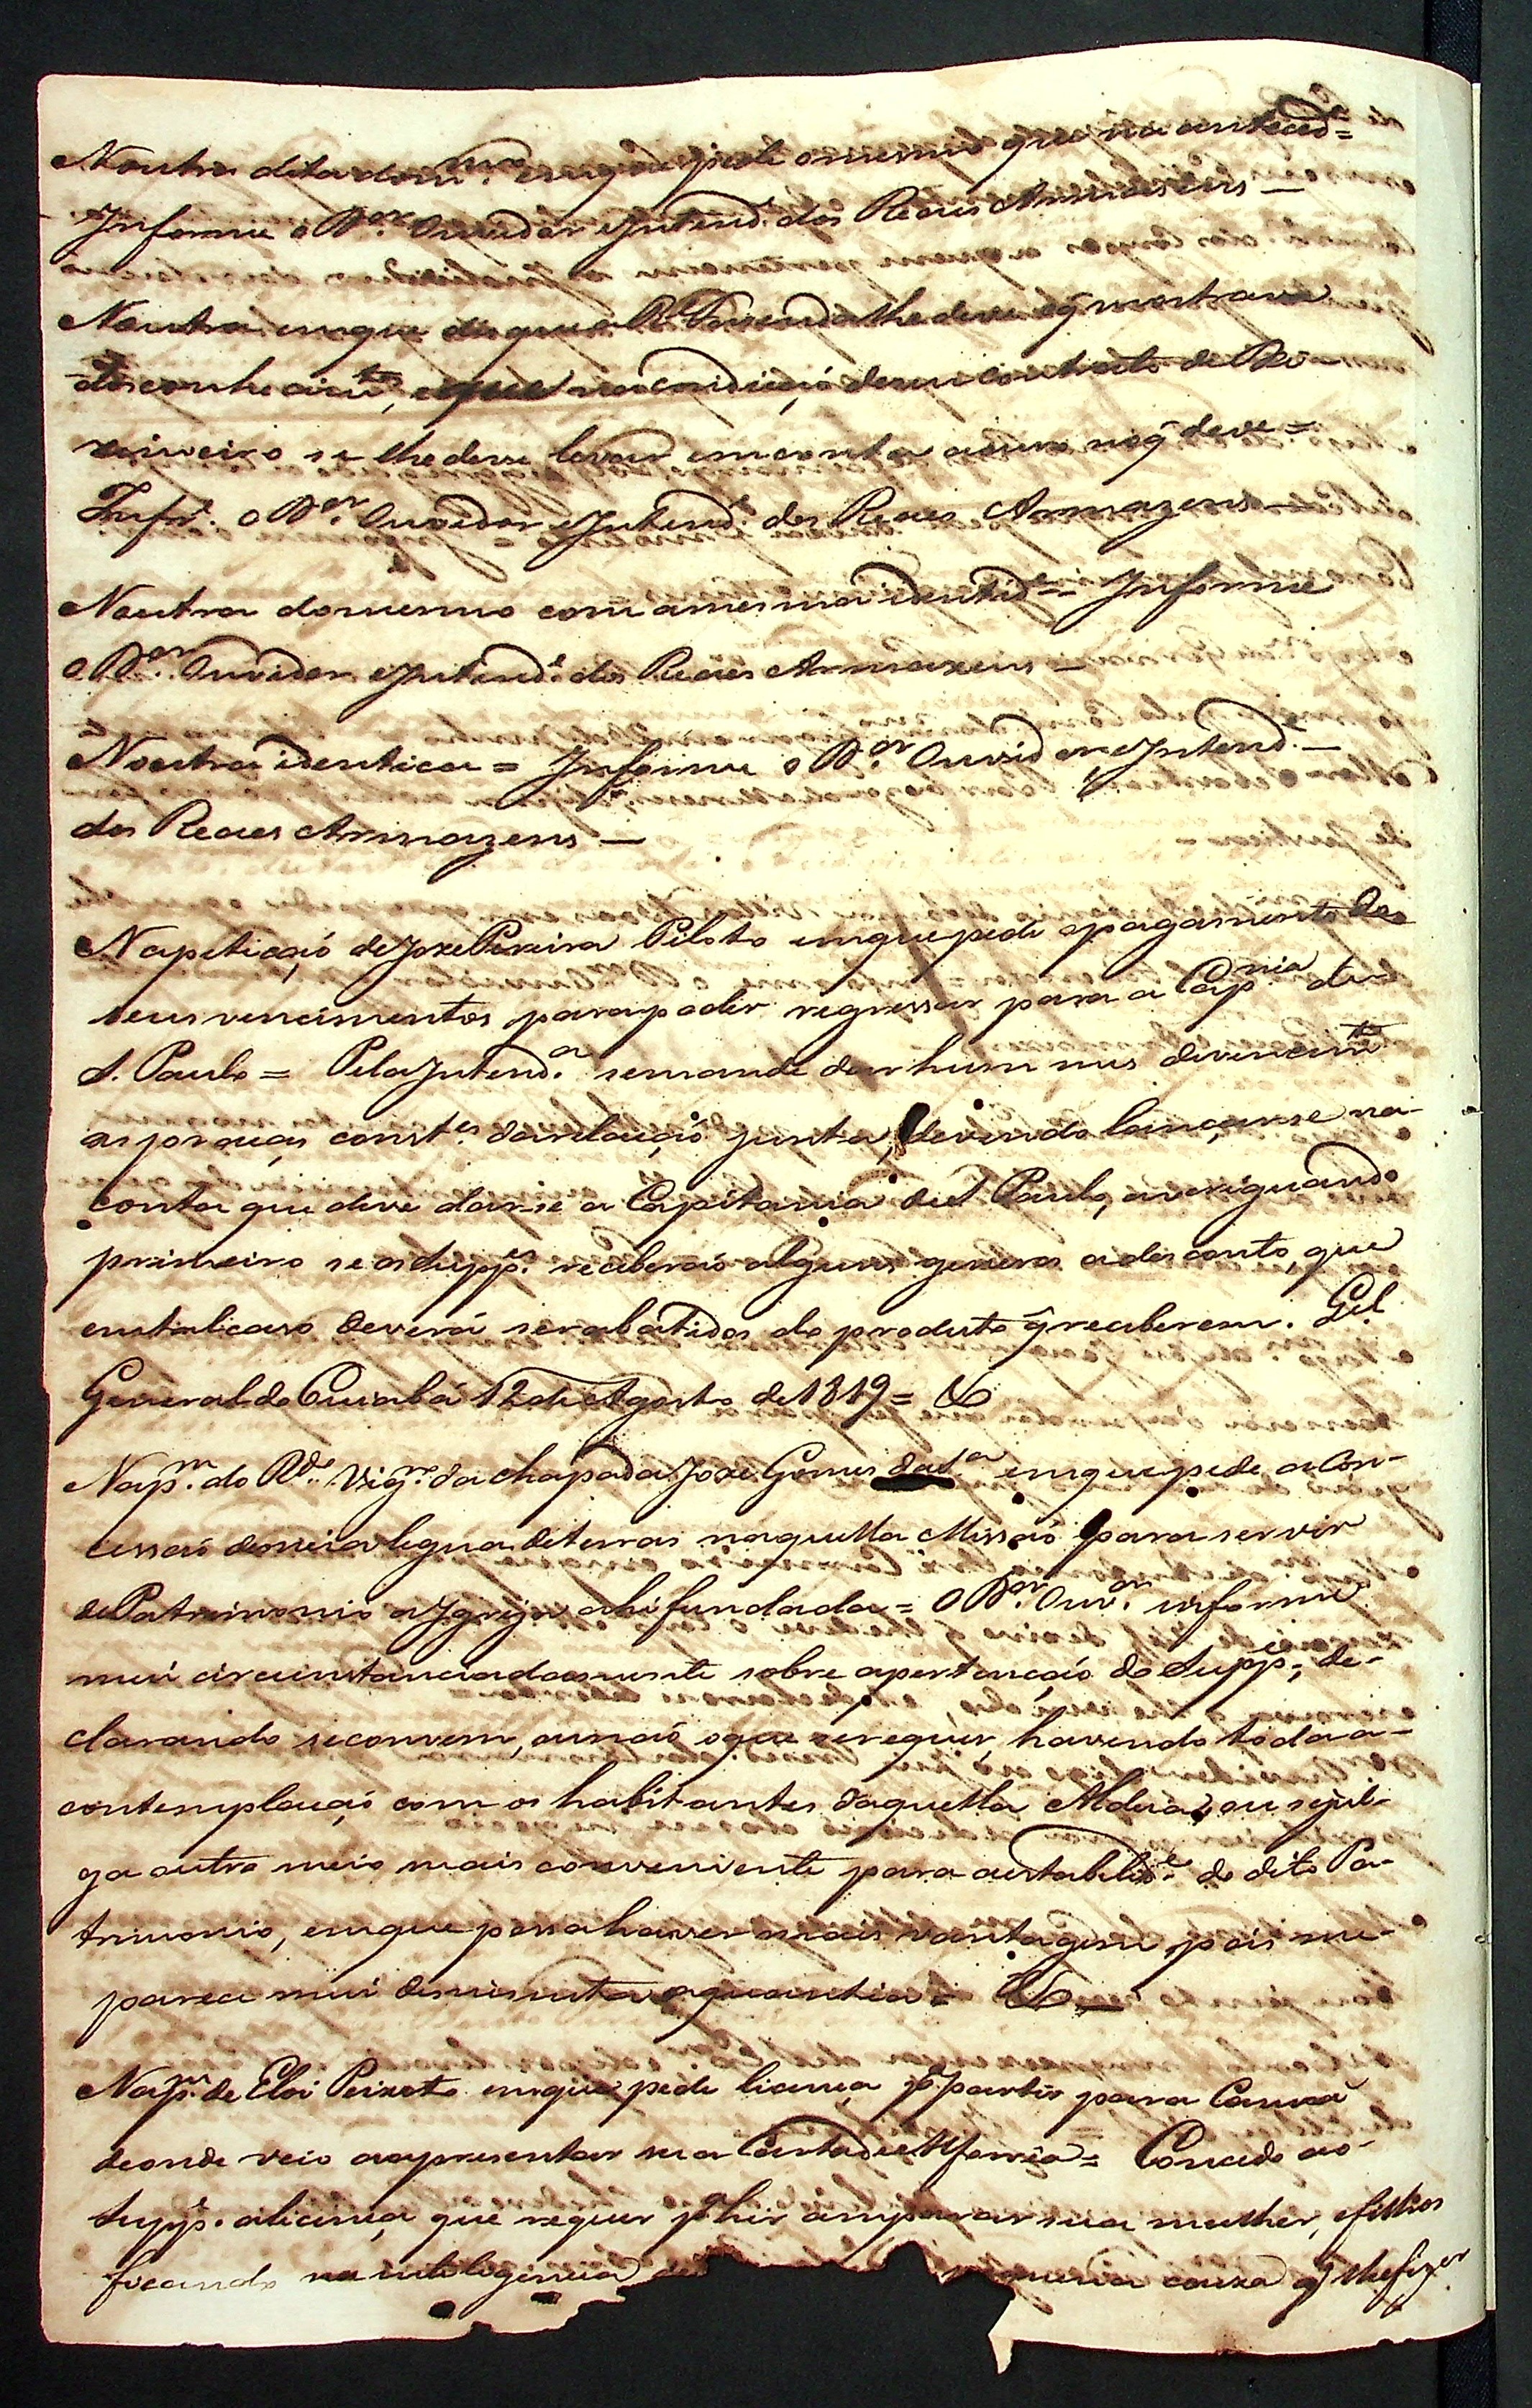 Noutra dita do m.mo em que pede o mesmo que na anteced.=
Informe o D.or Ouvidor e Intend.e dos Reaes Armazens —
Noutra em que diz que a R. Fazenda lhe deve o q̃ mostrava
dos conhecim.tos, e que na condiçaõ de seu contracto de Di-
zimeiro se lhe deve levar em conta a sua no q̃ deve =
Infr.e o D.or Ouvidor e Intend.e dos Reaes Armazens —
Noutra do mesmo com a mesma identid.e = Informe
o D.or Ouvidor e Intend.e dos Reaes Armazens —
Noutra identica = Informe o D.or Ouvidor e Intend.e —
dos Reaes Armazens —
Na petiçaõ de Joze Pereira Piloto em que pede o pagamento de
seus vencimentos para poder regressar para a Cap.nia de
S. Paulo = Pela Intend.a se mande dar hum mes de vencim.to
as praças const.es da relaçaõ junta, devendo lançarse na-
conta que deve darse a Capitania de S. Paulo, averiguando
primeiro se os Supp.es receberaõ alguns generos a desconto, que
em tal caso deverá ser abatidos do producto q̃ receberem. Q.el
General do Cuiabá 12 de Agosto de 1819 = &
Na p.m do R.do Vig.ro da Chapada Joze Gomes da S.a em que pede a Con-
cessaõ de meia legua de terras naquella Missaõ para servir
de Patrimonio a Igreja ahi fundada = O D.or Ouv.or informe
mui circunstanciadamente sobre a pertençaõ do Supp.e, de-
clarando se convem, ou naõ o que se requer, havendo toda a-
contemplaçaõ com os habitantes daquella Aldeia, ou se jul-
ga outro meio mais conveniente para o estabelec.e do dito Pa-
trimonio, em que possa haver mais vantagem, pois me-
parece mui deminuta a quantia = &
Na p.m de Eloi Peixoto em que pede licença p.a partir para
deonde veio a apresentar sua Carta de = Concedo ao-
Supp.e a licença que requer p.a hir amparar sua mulher, e filhos
ficando na inteligencia couza q̃ lhe fizer